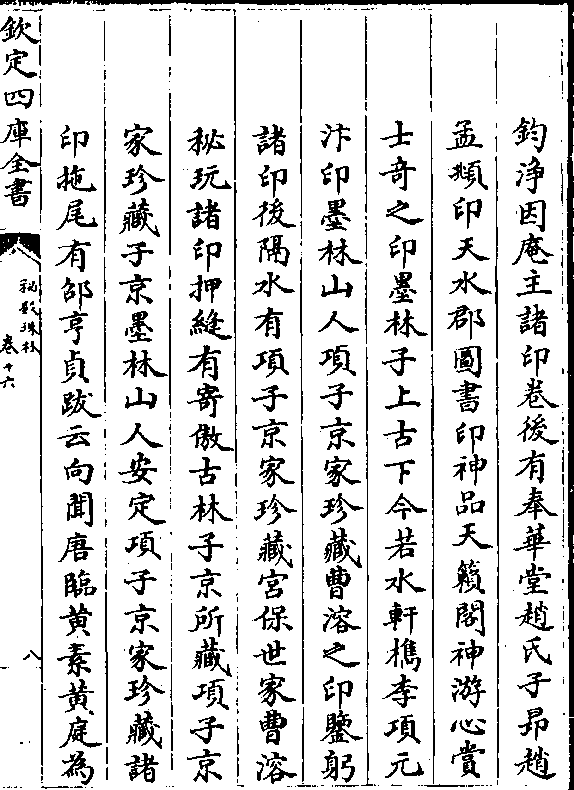 鈞浄因庵主諸印卷後有奉華堂趙氏子昻趙
孟頫印天水郡圖書印神品天籟閣神游心賞
士奇之印墨林子上古下今若水軒檇李項元
汴印墨林山人項子京家珍藏曹溶之印鑒躬
諸印後隔水有項子京家珍藏宮保世家曹溶
秘玩諸印押縫有寄傲古林子京所藏項子京
家珍藏子京墨林山人安定項子京家珍藏諸
印拖尾有邵亨貞跋云向聞唐臨黄素黄庭為
欽定四庫全書
秘殿珠林
卷十六
八